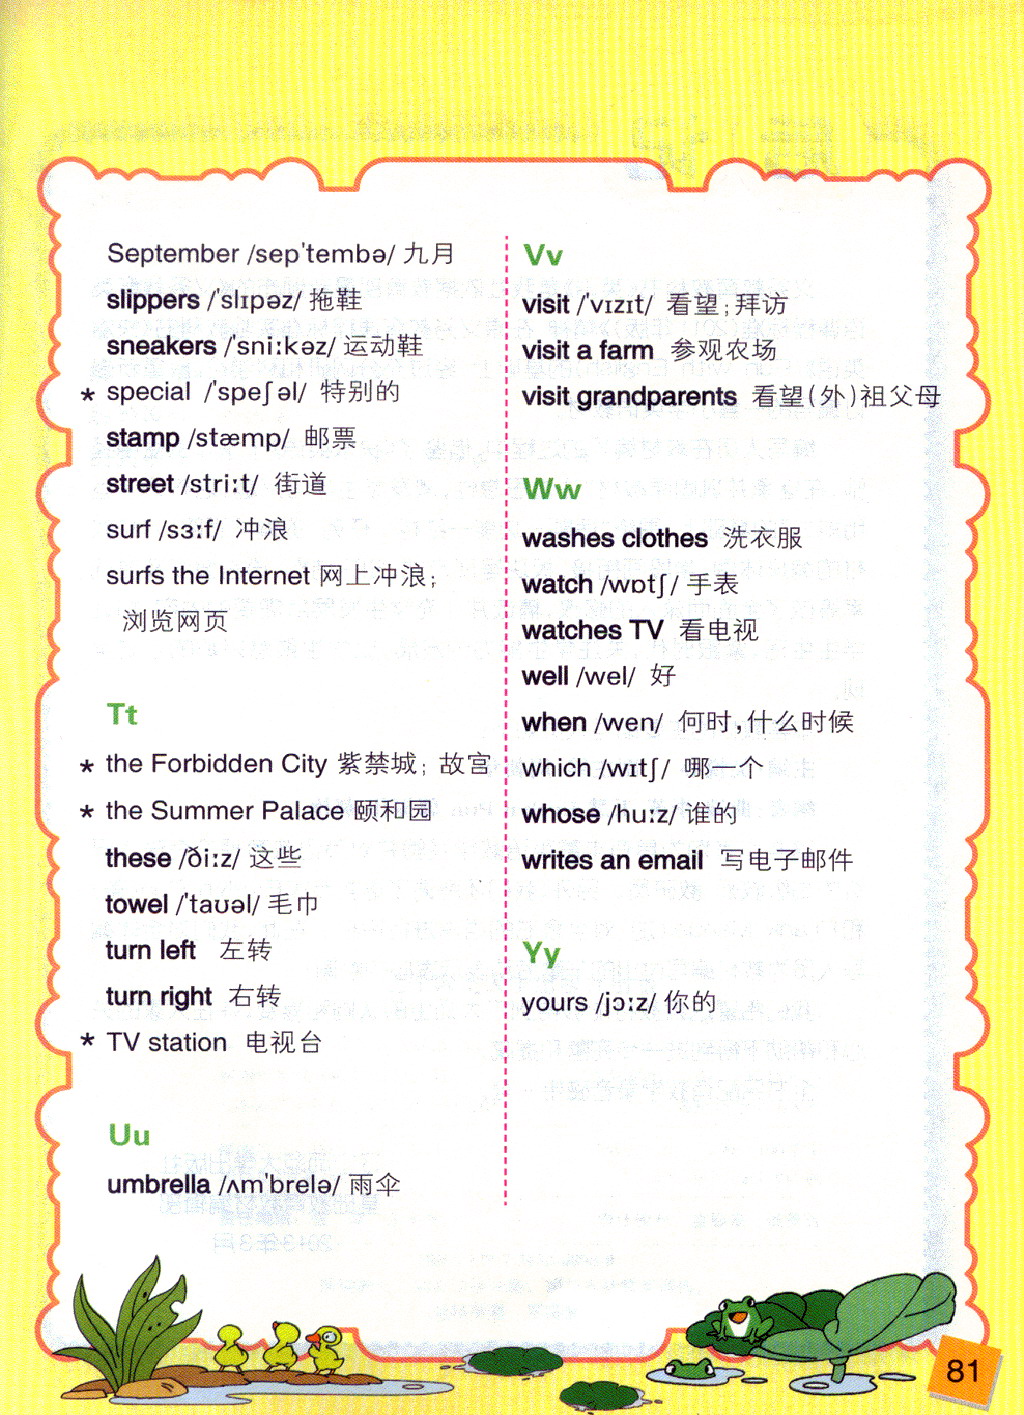 September /sep'tembə/ 九月
slippers /'slɪpəz/ 拖鞋
sneakers /'sniːkəz/ 运动鞋
★ special /'speʃəl/ 特别的
stamp /stæmp/ 邮票
street /striːt/ 街道
surf /sɜːf/ 冲浪
surfs the Internet 网上冲浪；
浏览网页
Tt
★ the Forbidden City 紫禁城；故宫
★ the Summer Palace 颐和园
these /ðiːz/ 这些
towel /'taʊəl/ 毛巾
turn left 左转
turn right 右转
★ TV station 电视台
Uu
umbrella /ʌm'brelə/ 雨伞
Vv
visit /'vɪzɪt/ 看望；拜访
visit a farm 参观农场
visit grandparents 看望(外)祖父母
Ww
washes clothes 洗衣服
watch /wɒtʃ/ 手表
watches TV 看电视
well /wel/ 好
when /wen/ 何时，什么时候
which /wɪtʃ/ 哪一个
whose /huːz/ 谁的
writes an email 写电子邮件
Yy
yours /jɔːz/ 你的
81